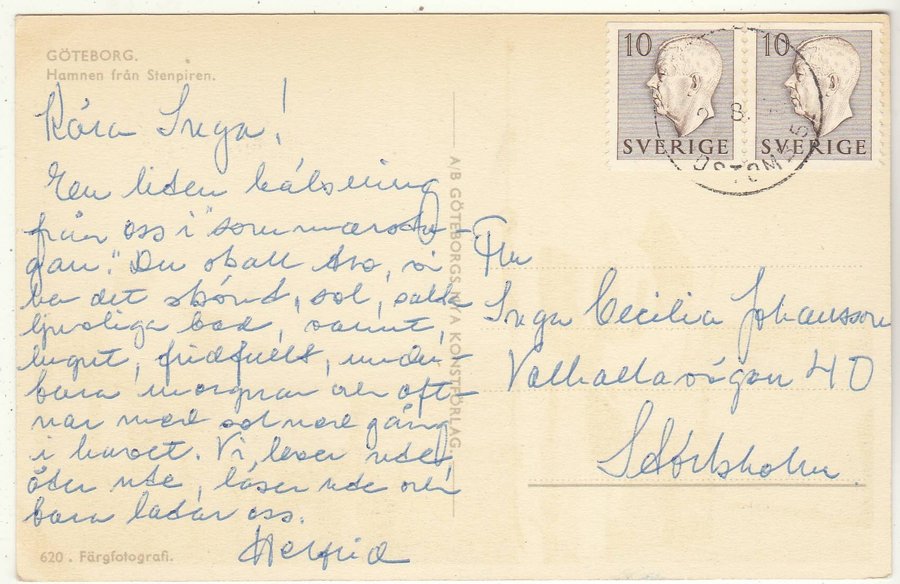 GÖTEBORG.
Hamnen från Stenpiren.
Kära Inga!
En liten hälsning
från oss i "sommarstu-
gan." Du skall tro, vi
ha det skönt, sol, salta
ljuvliga bad, varmt,
lugnt, fridfullt, under-
bara morgnar och aft-
nar med solnedgång
i havet. Vi lever ute,
äter ute, läser ute och
bara latar oss.
620. Färgfotografi.
A/B GÖTEBORGS NYA KONSTFÖRLAG.
10 10
SVERIGE SVERIGE
Fru
Inga Cecilia Johansson
Valhallavägen 40
Stockholm